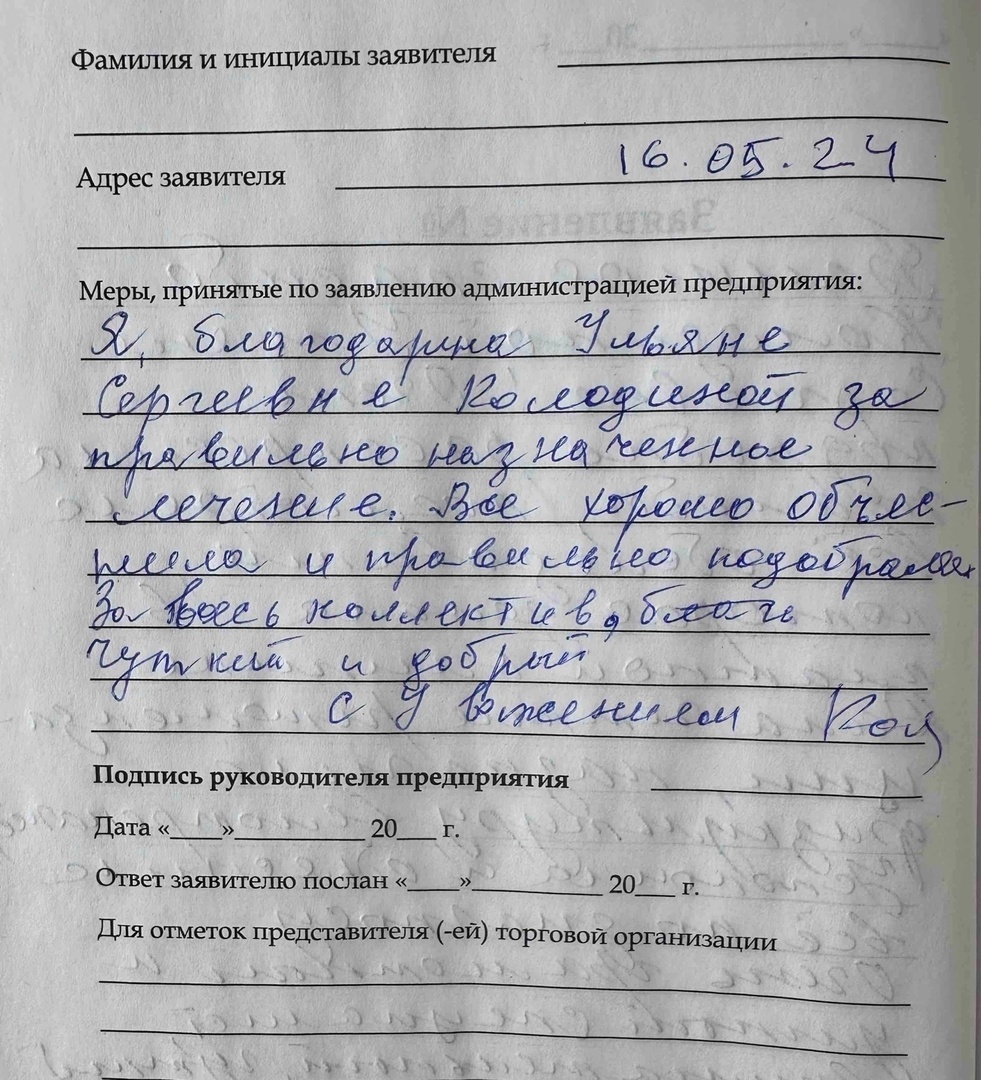 Фамилия и инициалы заявителя
16.05.24
Адрес заявителя
Меры, принятые по заявлению администрацией предприятия:
Я, благодарна Ульяне
Сергеевне Колодиной за
правильно назначенное
лечение. Все хорошо объяс-
нила и правильно подобрала.
За весь коллектив,
Чуткий и добрый
С Уважением
Подпись руководителя предприятия
Дата «____»__________ 20___ г.
Ответ заявителю послан «____»__________ 20___ г.
Для отметок представителя (-ей) торговой организации